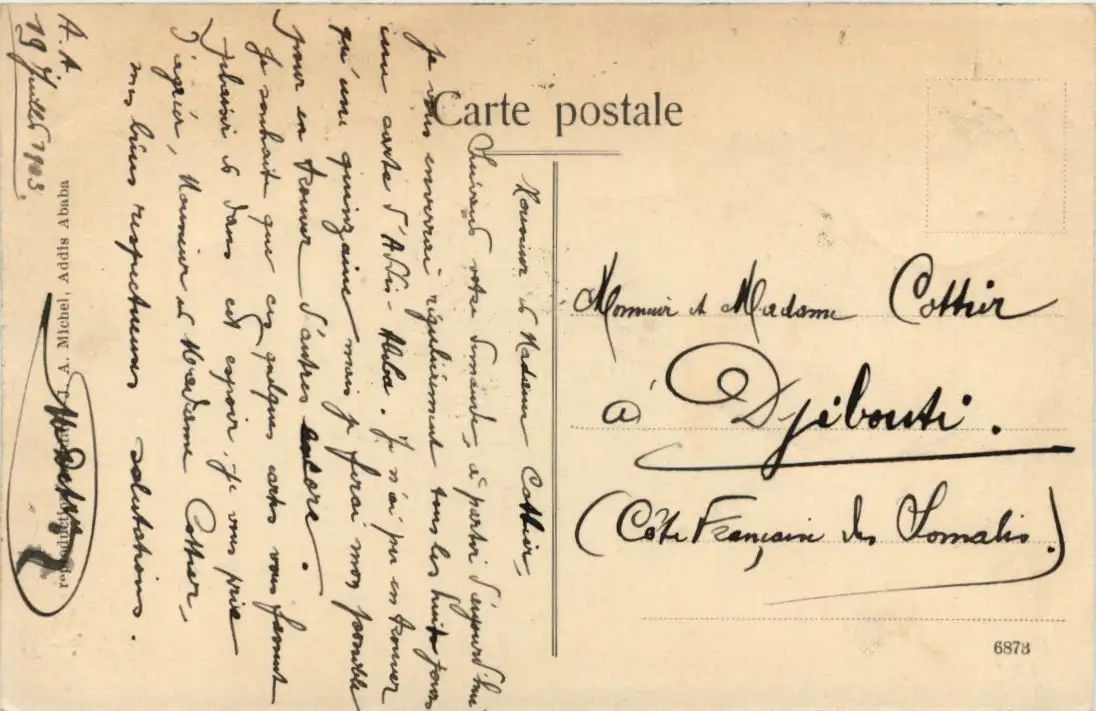 Carte postale
Monsieur & Madame Cottier,
Suivant votre demande, à partir d'aujourd'hui
je vous enverrai régulièrement tous les huit jours
une carte d'Addis-Ababa. Je n'ai pu en trouver
qu'une quinzaine mais je ferai mon possible
pour en trouver d'autres encore.
Je souhaite que ces quelques cartes vous fassent
plaisir & dans cet espoir, je vous prie
d'agréer, Monsieur et Madame Cottier,
mes biens respectueuses salutations.
A. A.
19 Juillet
A. Michel, Addis Ababa
Monsieur et Madame Cottier
à Djibouti.
(Côte Française des Somalis.)
6873